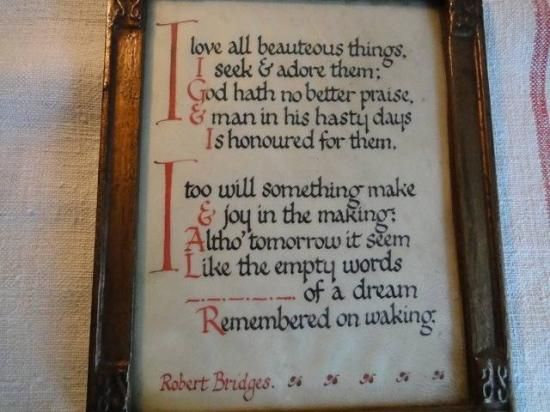 I love all beauteous things,
I seek & adore them;
God hath no better praise,
& man in his hasty days
Is honoured for them.
I too will something make
& joy in the making;
Altho' tomorrow it seem
Like the empty words
of a dream
Remembered on waking.
Robert Bridges.